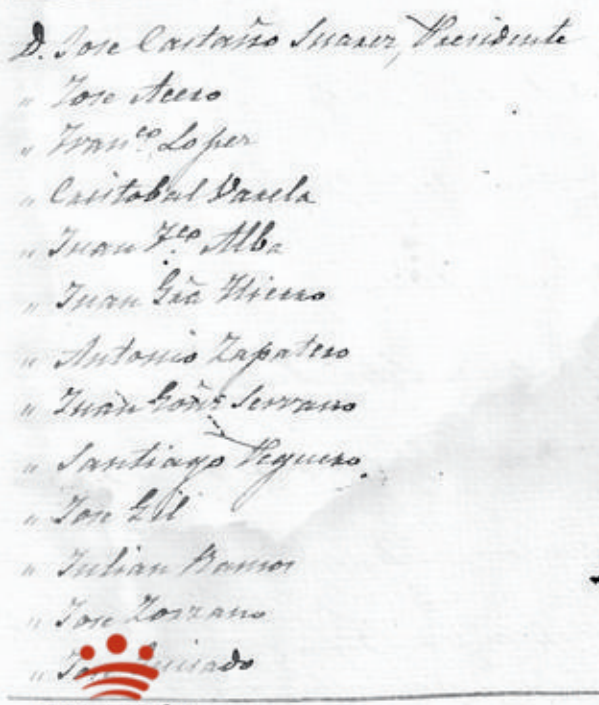 D. Jose Castaño Suarez, Presidente
" Jose Acero
" Franco Lopez
" Cristobal Varela
" Juan Fco Alba
" Juan Gra Hierro
" Antonio Zapatero
" Juan Goñz Serrano
" Santiago Veguero
" Jose Gil
" Julian Ramos
" Jose Lorzano
"